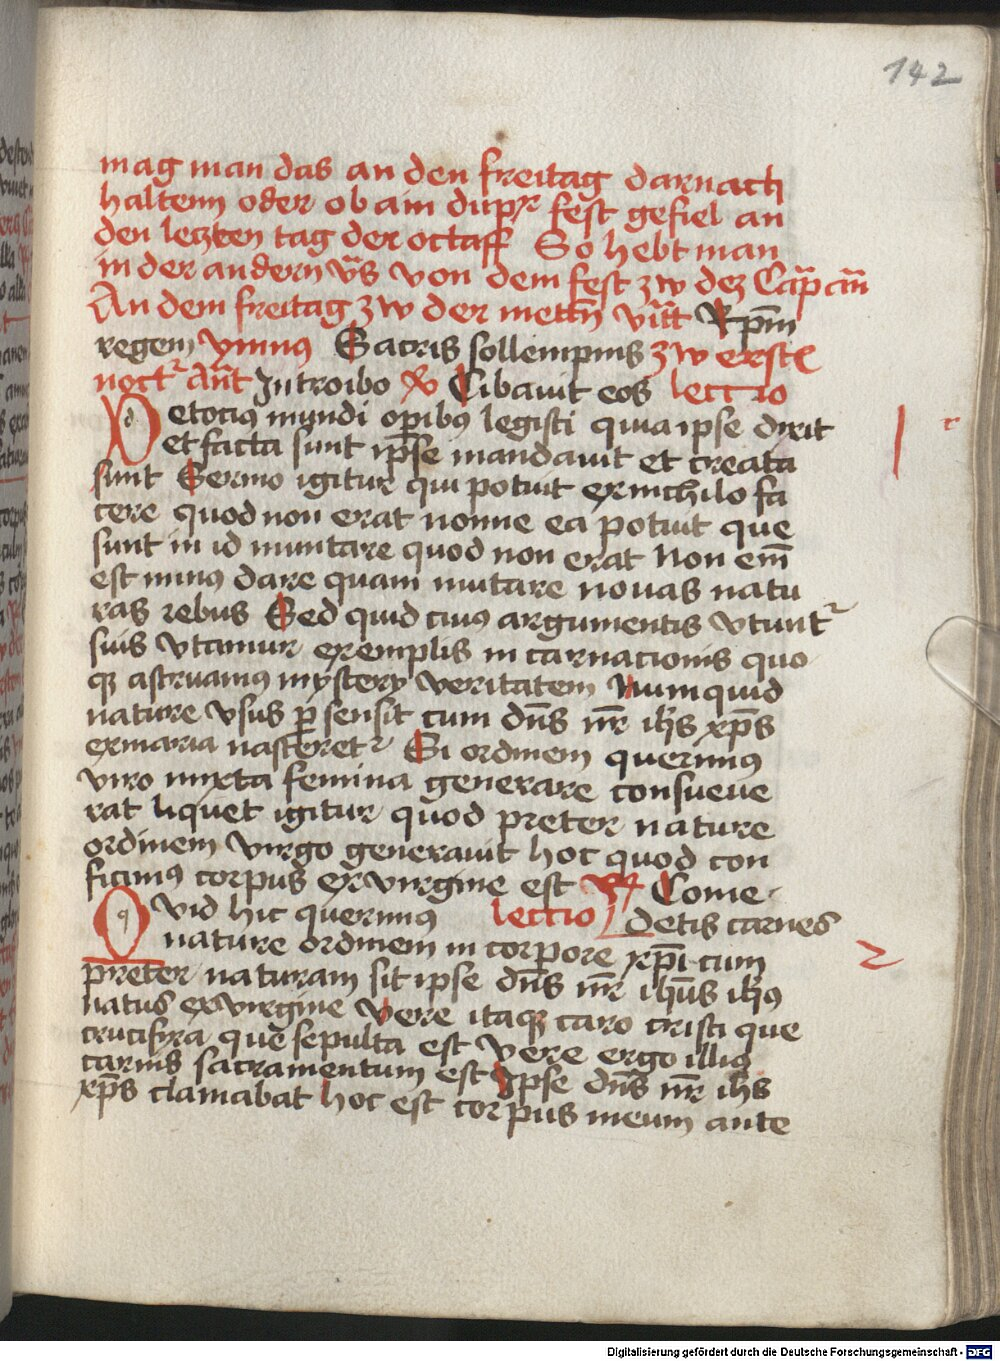 142
mag man das an den freitag darnach
haltenn oder ob ain dupꝛ fest gefiel an
den letzten tag der octaff So hebt man
in der andern v̄s von dem fest zw dez Cap̄
An dem freitag zw der mettn̄ Rp̄m
regem ymnus Sacris sollempnis zw erste
noct̉ Ant̄ Introibo Cibauit eos lectio
De totius mundi op̲ibus legisti quia ipse dixit
et facta sunt ip̄se mandauit et creata
sunt Sermo igitur qui potuit ex nichilo fa
cere quod non erat nonne ea potuit que
sunt in id muntare quod non erat Non em̄
est minus dare quam mutare nouas natu
ras rebus Sed quid cuius argumentis vtunt̉
suis vtamur exemplis in carnacionis quo
qꝫ astruamus mystery veritatem Numquid
nature vsus ꝑ sensit cum dn̄s nr̄ ih̄s xp̄s
ex maria nasceret̉ Si ordinem querimus
viro iuuxta femina generare consueue
rat liquet igitur quod preter nature
ordinem virgo generauit hoc quod con
ficimus corpus ex virgine est Come
Quid hic querimus lectio detis carnes
nature ordinem in corpore xp̄i cum
preter naturam sit ipse dn̄s nr̄ ih̄us ih̄s
natus ex virgine Vere itaqꝫ caro cristi que
crucifixa que sepulta est vere ergo illius
carnis sacramentum est Ipse dn̄s nr̄ ih̄s
xp̄s clamabat hoc est corpus meum ante
2
Digitalisierung gefördert durch die Deutsche Forschungsgemeinschaft - DFG